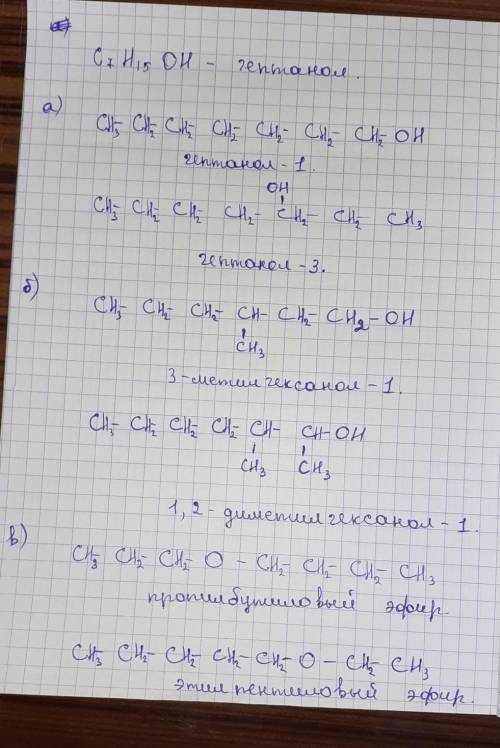 C₇H₁₅OH – гептанол.
а)
CH₃– CH₂– CH₂– CH₂– CH₂– CH₂– CH₂– OH
гептанол – 1.
OH
CH₃– CH₂– CH₂– CH₂– CH₂– CH₂– CH₃
гептанол – 3.
б)
CH₃– CH₂– CH₂– CH– CH₂– CH₂– OH
CH₃
3-метилгексанол – 1.
CH₃– CH₂– CH₂– CH₂– CH– CH–OH
CH₃ CH₃
1,2-диметилгексанол – 1.
в)
CH₃– CH₂– CH₂– O – CH₂– CH₂– CH₂– CH₃
пропилбутиловый эфир.
CH₃– CH₂– CH₂– CH₂– CH₂– O – CH₂– CH₃
этилпентиловый эфир.